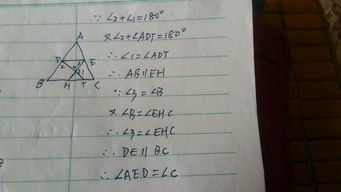 ∵ ∠2+∠1=180°
又∠2+∠ADT=180°
∴ ∠1=∠ADT
∴ AB∥EH
∵ ∠3=∠B
又 ∠B=∠EHC
∴ ∠3=∠EHC
∴ DE∥BC
∴ ∠AED=∠C
A
D
E
B
H
T
C